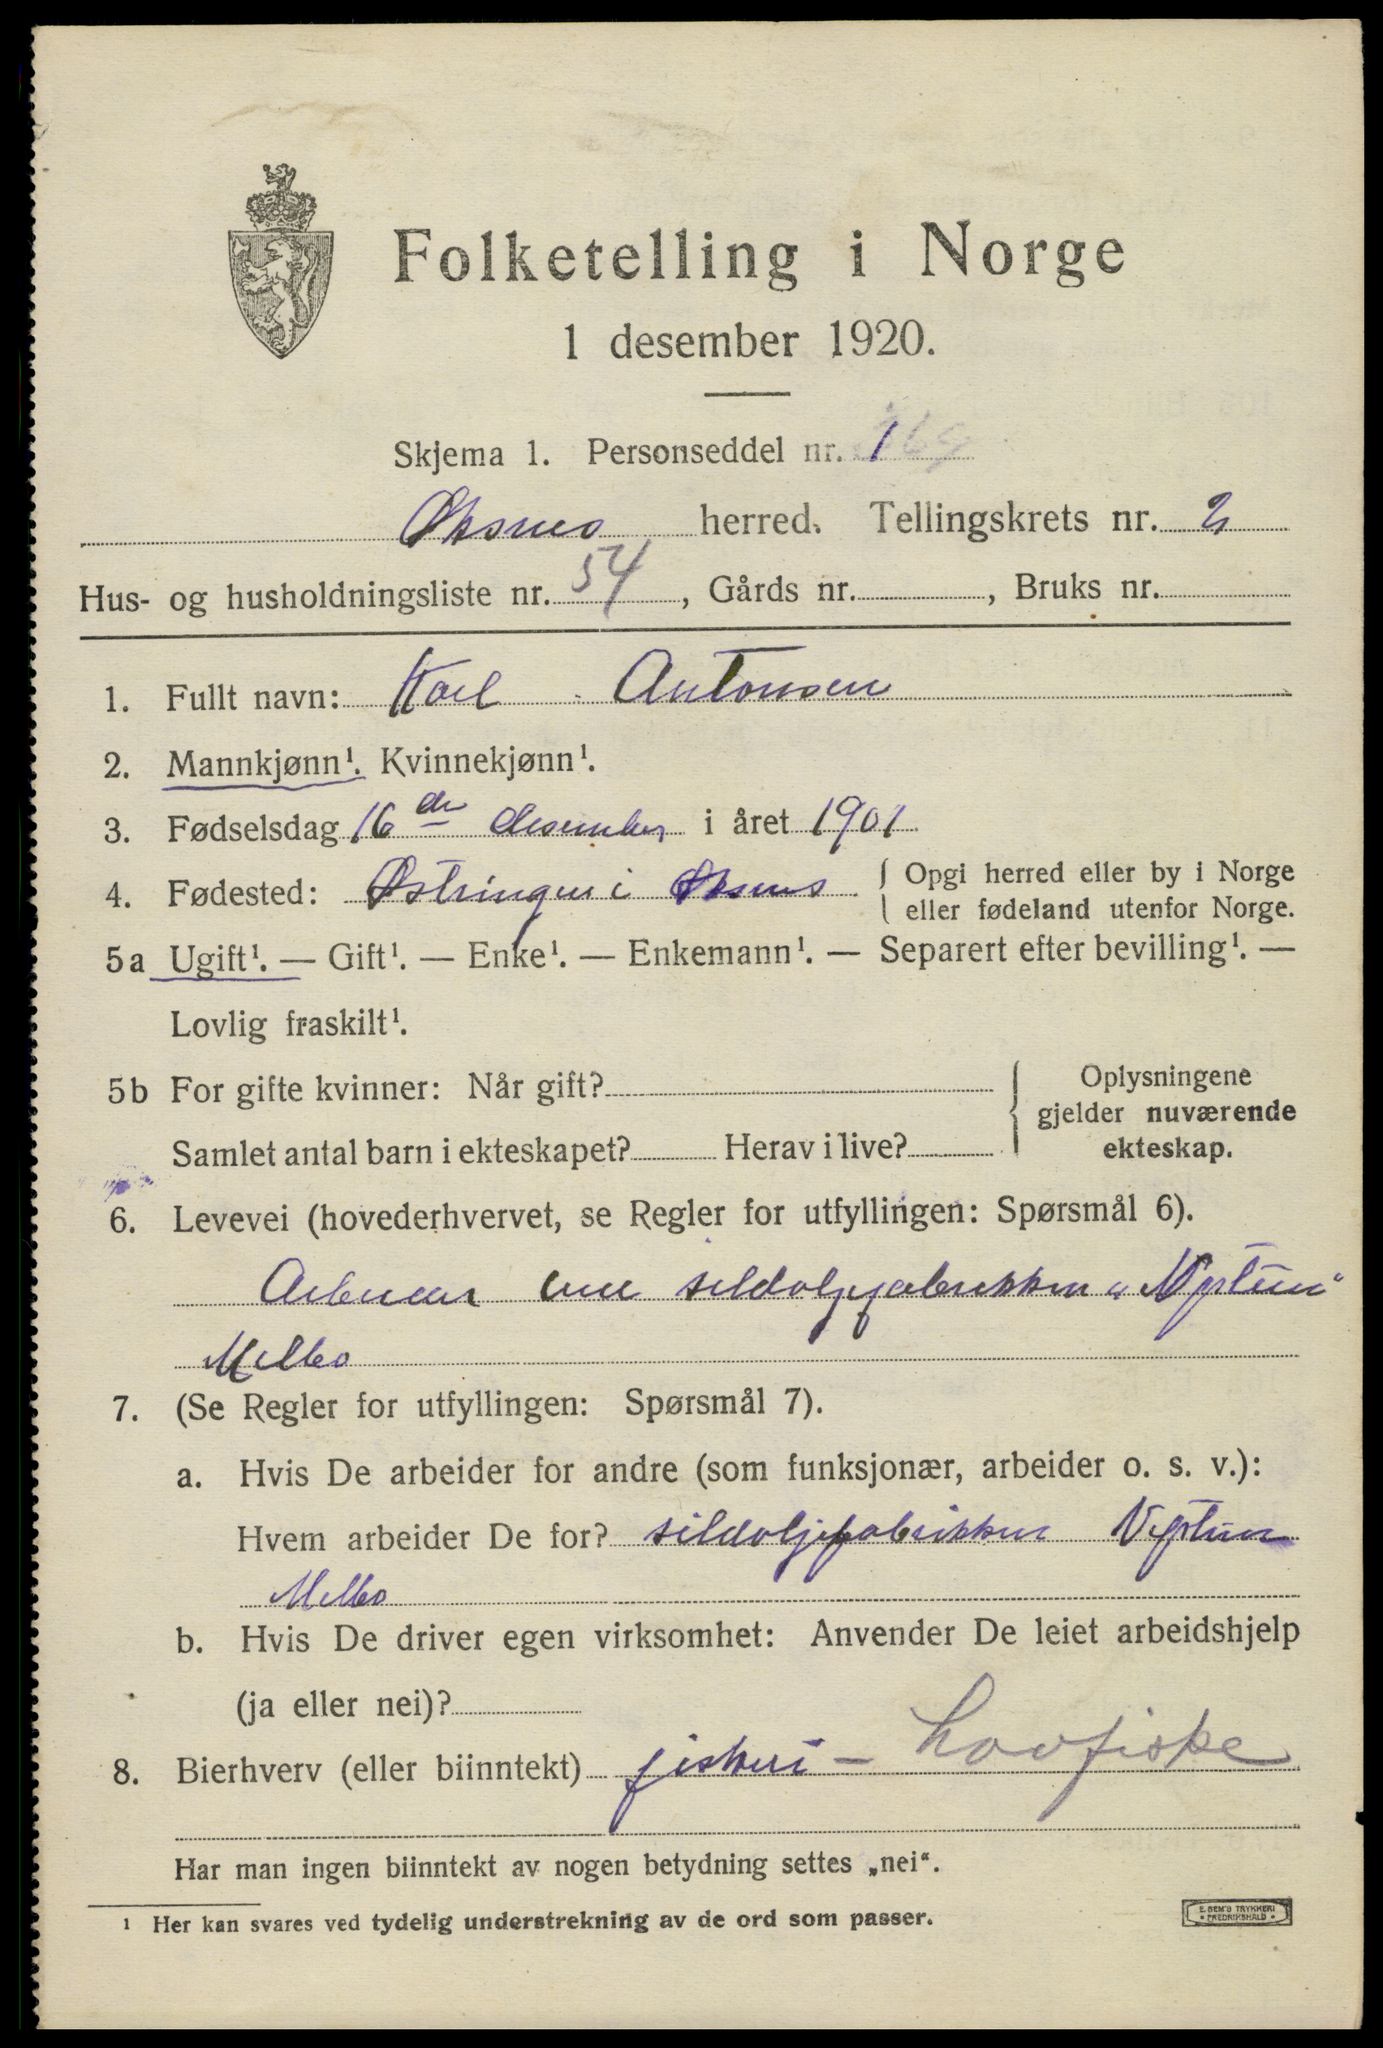 Folketelling i Norge
1 desember 1920.
Skjema 1. Personseddel nr. 1
Øksnes herred. Tellingskrets nr. 2
Hus- og husholdningsliste nr. 54, Gårds nr. , Bruks nr.
1. Fullt navn: Karl Antonsen
2. Mannkjønn¹. Kvinnekjønn¹.
3. Fødselsdag 16 de desember i året 1901
4. Fødested: Østringen i Øksnes { Opgi herred eller by i Norge
eller fødeland utenfor Norge.
5a Ugift¹. — Gift¹. — Enke¹. — Enkemann¹. — Separert efter bevilling¹. —
Lovlig fraskilt¹.
5b For gifte kvinner: Når gift? { Oplysningene
gjelder nuværende
Samlet antal barn i ekteskapet? Herav i live? ekteskap.
6. Levevei (hovederhvervet, se Regler for utfyllingen: Spørsmål 6).
Arbeider ved sildoljefabrikken „Neptun"
Melbo
7. (Se Regler for utfyllingen: Spørsmål 7).
a. Hvis De arbeider for andre (som funksjonær, arbeider o. s. v.):
Hvem arbeider De for? sildoljefabrikken Neptun
Melbo
b. Hvis De driver egen virksomhet: Anvender De leiet arbeidshjelp
(ja eller nei)?
8. Bierhverv (eller biinntekt) fiskeri - Lovfiske
Har man ingen biinntekt av nogen betydning settes „nei".
¹ Her kan svares ved tydelig understrekning av de ord som passer.
E. SEM'S TRYKKERI
FREDRIKSHALD